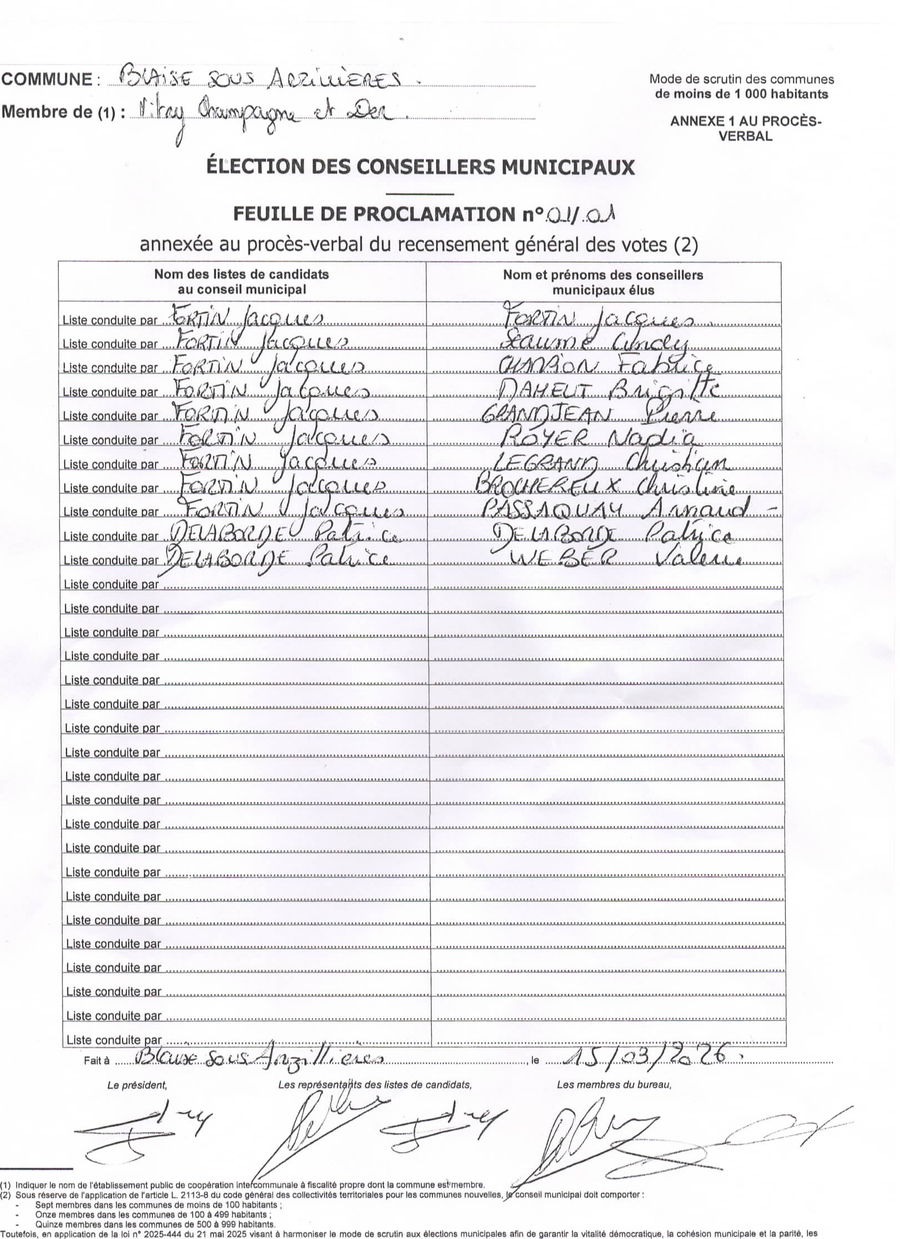 COMMUNE : BLAISE SOUS ARZILLIERES.
Membre de (1) : Vitry Champagne et Der.
Mode de scrutin des communes
de moins de 1 000 habitants
ANNEXE 1 AU PROCÈS-
VERBAL
ÉLECTION DES CONSEILLERS MUNICIPAUX
FEUILLE DE PROCLAMATION n° 01/01
annexée au procès-verbal du recensement général des votes (2)
Nom des listes de candidats
au conseil municipal
Nom et prénoms des conseillers
municipaux élus
Liste conduite par FORTIN Jacques FORTIN Jacques
Liste conduite par FORTIN Jacques Cindy
Liste conduite par FORTIN Jacques CHAMPION Fabrice
Liste conduite par FORTIN Jacques MAHEUT Brigitte
Liste conduite par FORTIN Jacques GRANDJEAN Pierre
Liste conduite par FORTIN Jacques ROYER Nadia
Liste conduite par FORTIN Jacques LEGRAND Christian
Liste conduite par FORTIN Jacques BROCHEREUX Christine
Liste conduite par FORTIN Jacques PASSAQUAY Arnaud -
Liste conduite par DELABORDE Patrice DELABORDE Patrice
Liste conduite par DELABORDE Patrice WEBER Valerie
Liste conduite par
Liste conduite par
Liste conduite par
Liste conduite par
Liste conduite par
Liste conduite par
Liste conduite par
Liste conduite par
Liste conduite par
Liste conduite par
Liste conduite par
Liste conduite par
Liste conduite par
Liste conduite par
Liste conduite par
Liste conduite par
Liste conduite par
Liste conduite par
Liste conduite par
Liste conduite par
Fait à Blaise sous Arzillieres, le 15/03/2026.
Le président,
Les représentants des listes de candidats,
Les membres du bureau,
(1) Indiquer le nom de l'établissement public de coopération intercommunale à fiscalité propre dont la commune est membre.
(2) Sous réserve de l'application de l'article L. 2113-8 du code général des collectivités territoriales pour les communes nouvelles, le conseil municipal doit comporter :
- Sept membres dans les communes de moins de 100 habitants ;
- Onze membres dans les communes de 100 à 499 habitants ;
- Quinze membres dans les communes de 500 à 999 habitants.
Toutefois, en application de la loi n° 2025-444 du 21 mai 2025 visant à harmoniser le mode de scrutin aux élections municipales afin de garantir la vitalité démocratique, la cohésion municipale et la parité, les